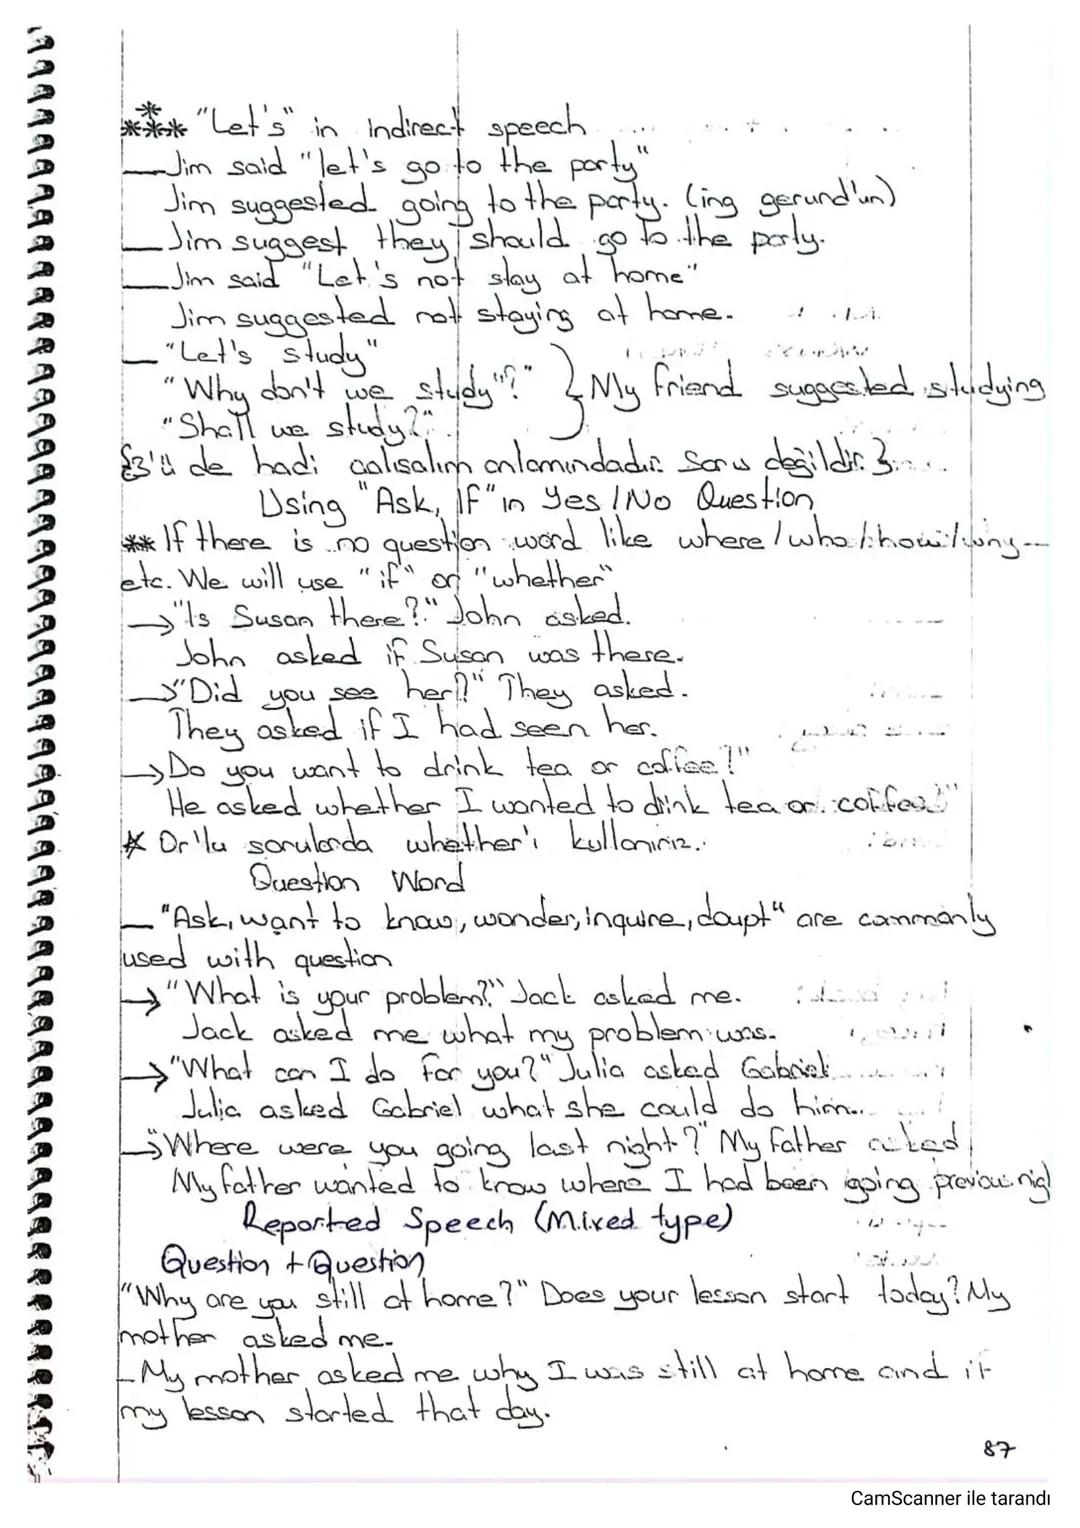 *** "Let's" in indirect speech
— Jim said "let's go to the party"
Jim suggested going to the party. (ing gerund'un)
— Jim suggest they should go to the party.
— Jim said "Let's not stay at home"
Jim suggested not staying at home.
— "Let's study"
"Why don't we study"?" } My friend suggested studying
"Shall we study?"
{3'ü de hadi çalısalım anlamındadır. Soru değildir.}
Using "Ask, If" in Yes / No Question
** If there is no question word like where / who / how / why --
etc. We will use "if" or "whether"
→ "Is Susan there?" John asked.
John asked if Susan was there.
→ "Did you see her?" They asked.
They asked if I had seen her.
→ Do you want to drink tea or coffee?"
He asked whether I wanted to drink tea or coffee?"
* Or'lu sorularda whether'ı kullanırız.
Question Word
— "Ask, want to know, wonder, inquire, doupt" are commonly
used with question
→ "What is your problem?" Jack asked me.
Jack asked me what my problem was.
→ "What can I do for you?" Julia asked Gabriel
Julia asked Gabriel what she could do him.
→ "Where were you going last night?" My father asked
My father wanted to know where I had been going previous nig
Reported Speech (Mixed type)
Question + Question
"Why are you still at home?" Does your lesson start today? My
mother asked me.
- My mother asked me why I was still at home and if
my lesson started that day.
87
CamScanner ile tarandı